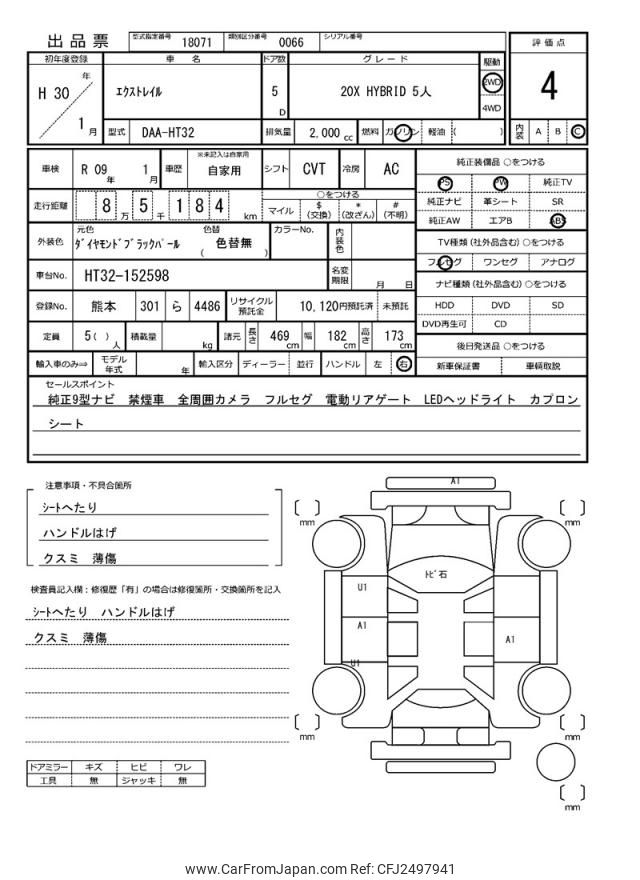 出品票 型式指定番号 18071 類別区分番号 0066 シリアル番号
初年度登録 車名 ドア数 グレード 駆動 評価点
H 30 年 1 月 エクストレイル 5 D 20X HYBRID 5人 2WD 4WD 4
型式 DAA-HT32 排気量 2,000 cc 燃料 ガソリン 軽油 ( ) 内装 A B C
車検 R 09 年 1 月 車歴 ※未記入は自家用 自家用 シフト CVT 冷房 AC
走行距離 8 万 5 千 1 8 4 km ○をつける マイル $ (交換) * (改ざん) # (不明)
外装色 元色 ダイヤモンドブラックパール 色替 ( 色替無 ) カラーNo. 内装色
車台No. HT32-152598 名変期限 月 日
登録No. 熊本 301 ら 4486 リサイクル預託金 10,120円預託済 未預託
定員 5( ) 人 積載量 kg 諸元 長さ 469 cm 幅 182 cm 高さ 173 cm
輸入車のみ⇒ モデル年式 年 輸入区分 ディーラー 並行 ハンドル 左 右
純正装備品 ○をつける
PS PW 純正TV
純正ナビ 革シート SR
純正AW エアB ABS
TV種類 (社外品含む) ○をつける
フルセグ ワンセグ アナログ
ナビ種類 (社外品含む) ○をつける
HDD DVD SD
DVD再生可 CD
後日発送品 ○をつける
新車保証書 車輌取説
セールスポイント
純正9型ナビ 禁煙車 全周囲カメラ フルセグ 電動リアゲート LEDヘッドライト カプロン
シート
注意事項・不具合箇所
シートへたり
ハンドルはげ
クスミ 薄傷
検査員記入欄:修復歴「有」の場合は修復箇所・交換箇所を記入
シートへたり ハンドルはげ
クスミ 薄傷
ドアミラー キズ ヒビ ワレ
工具 無 ジャッキ 無
A1
mm mm
トビ石
U1
A1 A1
U1
mm mm
mm
www.CarFromJapan.com Ref: CFJ2497941